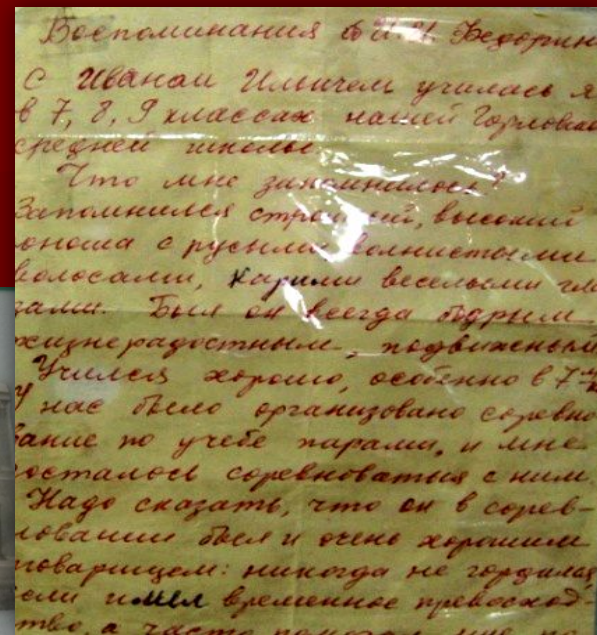 Воспоминания о И.И. Федорин
С Иваном Ильичем училась я
в 7, 8, 9 классах нашей Горловско
средней школы.
Что мне запомнилось?
Запомнился стройный, высокий
юноша с русыми волнистыми
волосами, карими веселыми гла
зами. Был он всегда бодрым
жизнерадостным, подвижным
Учился хорошо, особенно в 7
У нас было организовано соревно
вание по учебе парами, и мне
досталось соревноваться с ним.
Надо сказать, что он в сорев-
новании был и очень хорошим
товарищем: никогда не гордился
если имел временное превосход-
ство, а часто